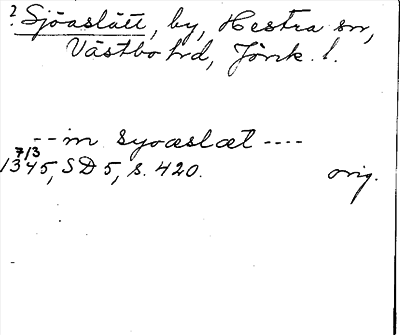 ? Sjöaslätt, by, Hestra sn,
Västbo hd, Jönk. l.
-- in syoæslæt ----
7/3
1345, SD 5, s. 420. orig.